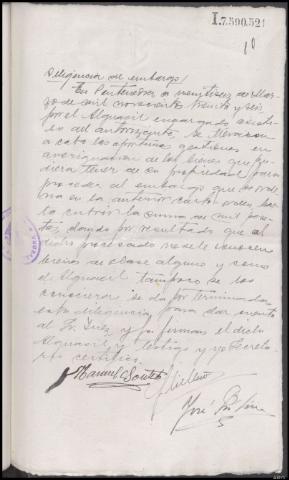 I.7.590.521
10
Diligencia de embargo/
En Pontevedra a veintiseis de Mar-
zo de mil novecientos treinta y seis
por el Alguacil encargado asisti-
do del autorizante, se llevaron
a cabo las oportunas gestiones en
averiguacion de los bienes que pu-
diera tener de su propiedad para
proceder al embargo que se orde-
na en la anterior carta orden, has-
ta cubrir la suma de mil pese-
tas, dando por resultado que al
dicho procesado no se le conocen
bienes de clase alguna y como
el Alguacil tampoco se los
conociera se da por terminada
esta diligencia para dar cuenta
al Sr. Juez y la firman el dicho
Alguacil y testigo y yo Secreta-
rio certifico.
Manuel
José